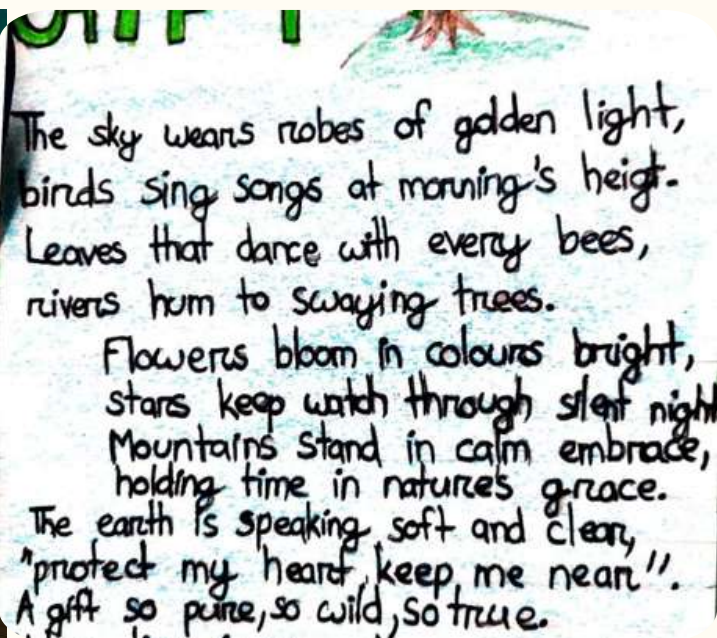 The sky wears robes of golden light,
birds sing songs at morning's heigt.
Leaves that dance with every bees,
rivers hum to swaying trees.
Flowers bloom in colours bright,
stars keep watch through silent night
Mountains stand in calm embrace,
holding time in nature's grace.
The earth is speaking, soft and clear,
"protect my heart, keep me near".
A gift so pure, so wild, so true.